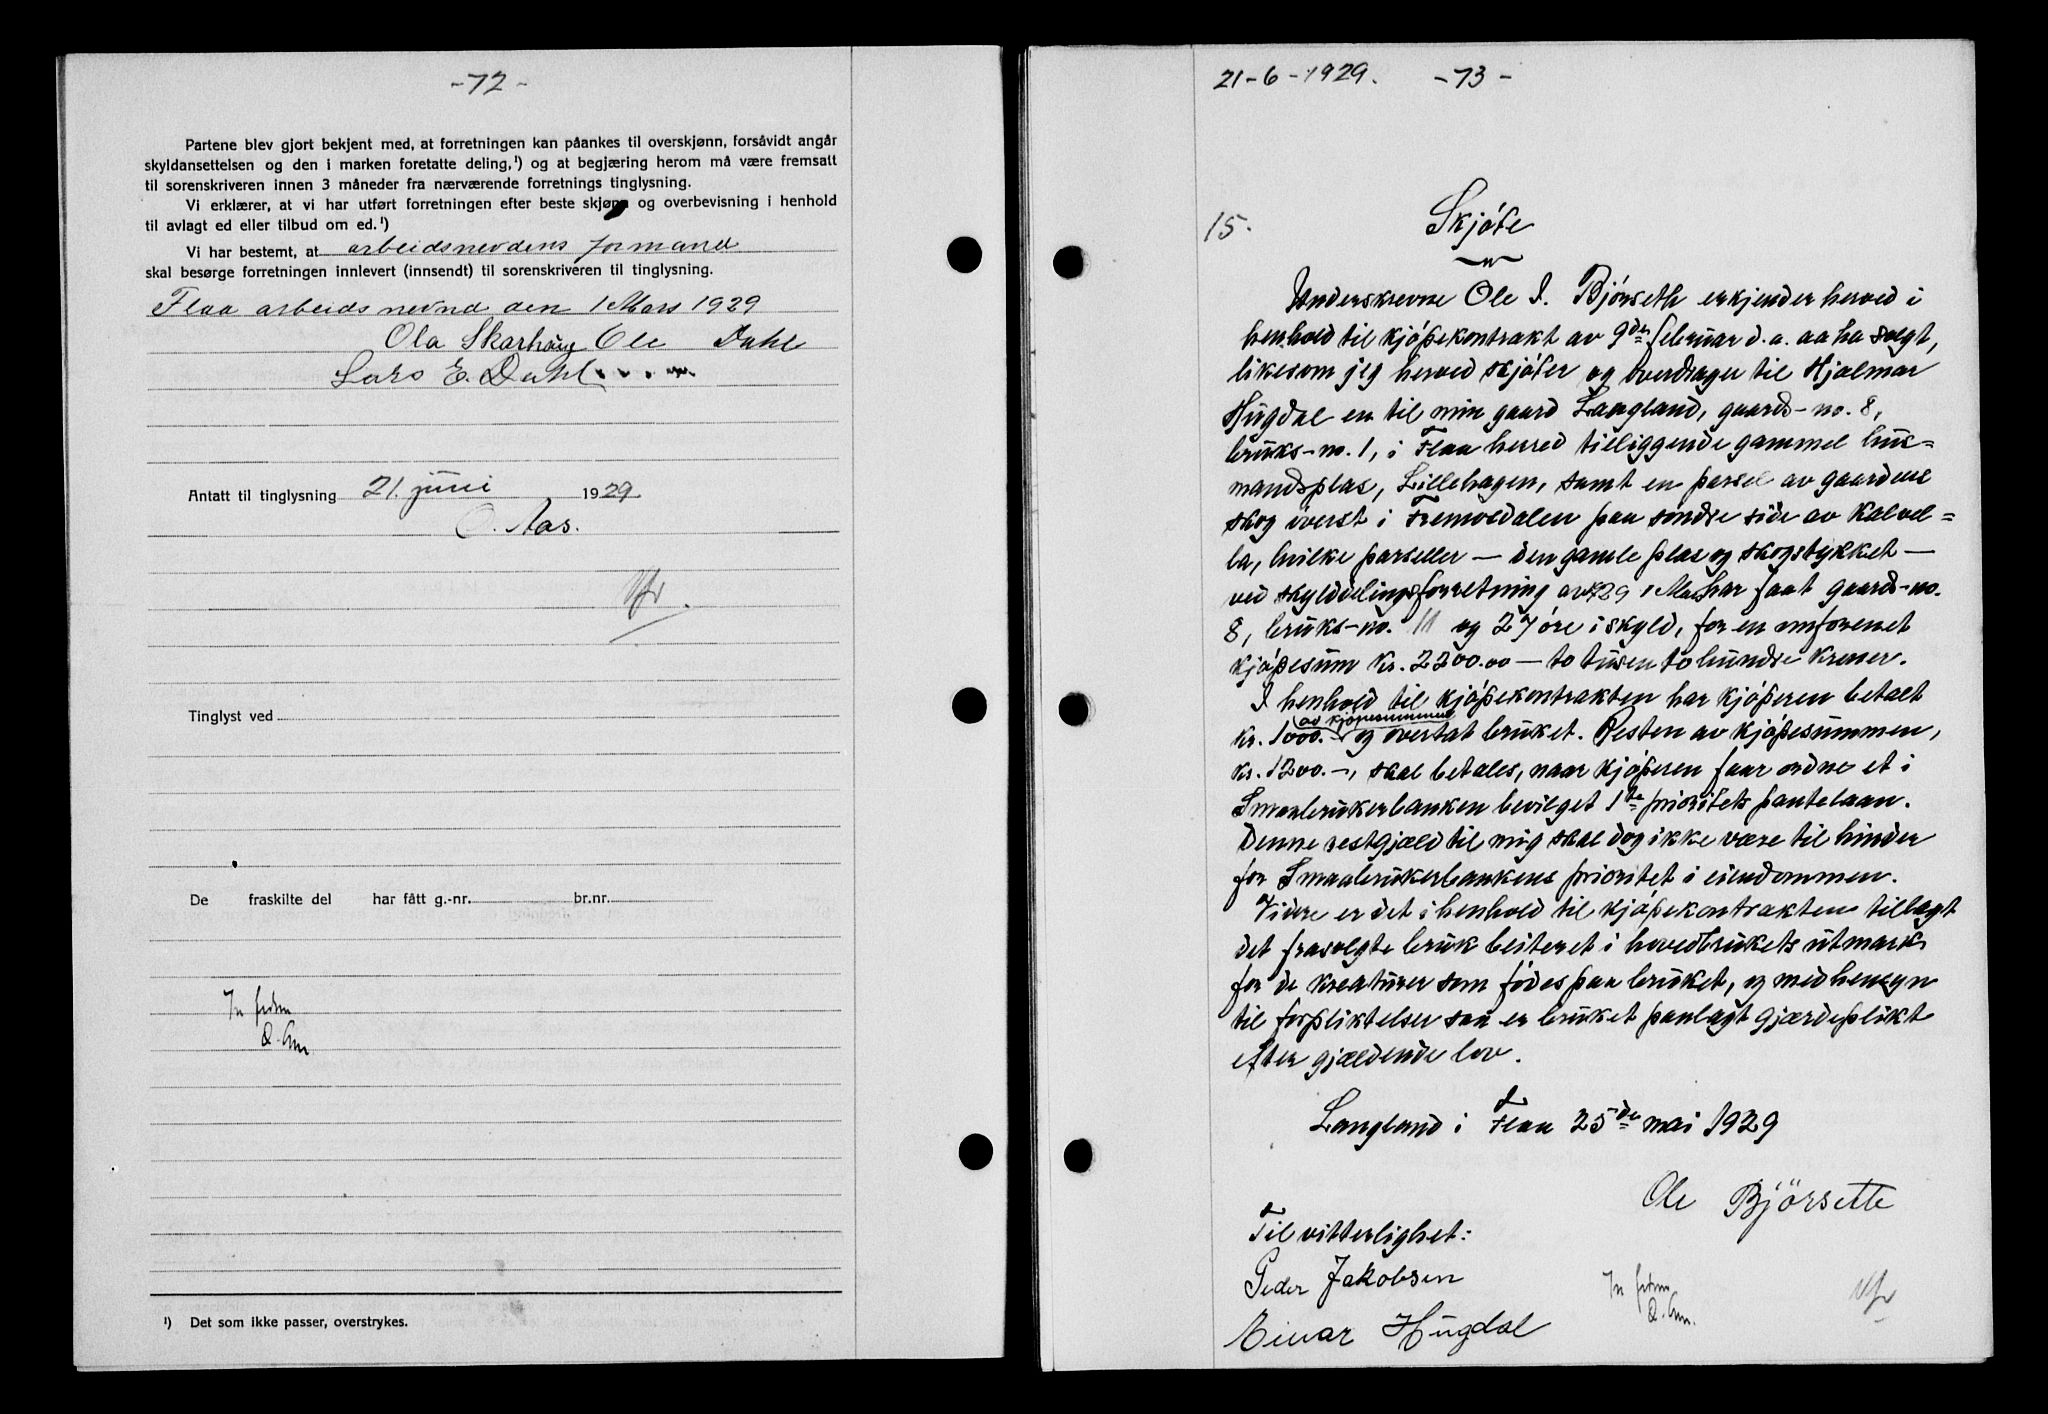 -72-
Partene blev gjort bekjent med, at forretningen kan påankes til overskjønn, forsåvidt angår
skyldansettelsen og den i marken foretatte deling,¹) og at begjæring herom må være fremsatt
til sorenskriveren innen 3 måneder fra nærværende forretnings tinglysning.
Vi erklærer, at vi har utført forretningen efter beste skjønn og overbevisning i henhold
til avlagt ed eller tilbud om ed.¹)
Vi har bestemt, at arbeidsnevdens formand
skal besørge forretningen innlevert (innsendt) til sorenskriveren til tinglysning.
Flaa arbeidsnevnd den 1 Mars 1929
Ola Skarhaug Ole Dahl
Lars E. Dahl
Antatt til tinglysning 21. juni 1929.
O. Aas.
Tinglyst ved
De fraskilte del har fått g.-nr. br.nr.
¹) Det som ikke passer, overstrykes.
21-6-1929. -73-
15. Skjøte
Underskrevne Ole I. Bjørseth erkjender herved i
henhold til kjøpekontrakt av 9de februar d.a. aa ha solgt,
likesom jeg herved skjøter og overdrager til Hjalmar
Hugdal en til min gaard Langland, gaards-no. 8,
bruks-no. 1, i Flaa herred tilliggende gammel hus=
mandsplas, Lillehagen, samt en parsel av gaardens
skog øverst i Fremoedalen paa søndre side av Kalvel=
la, hvilke parseller — den gamle plas og skogstykket —
ved skylddelingsforretning av 1 Mars har faat gaards-no.
8, bruks-no. 11 og 27 øre i skyld, for en omforenet
kjøpesum kr. 2200.00 — to tusen tohundre kroner.
I henhold til kjøpekontrakten har kjøperen betalt
av kjøpesummen
kr. 1000.- og overtat bruket. Resten av kjøpesummen,
kr. 1200.-, skal betales, naar kjøperen faar ordne et i
Smaabrukerbanken bevilget 1ste prioritets pantelaan.
Denne restgjæld til mig skal dog ikke være til hinder
for Smaabrukerbankens prioritet i eiendommen.
Videre er det i henhold til kjøpekontrakten tillagt
det frasolgte bruk beiteret i hovedbrukets utmark
for de kreaturer som fødes paa bruket, og med hensyn
til forpliktelser saa er bruket paalagt gjærdeplikt
efter gjældende lov.
Langland i Flaa 25de mai 1929
Ole Bjørseth
Til vitterlighet:
Peder Jakobsen
Einar Hugdal